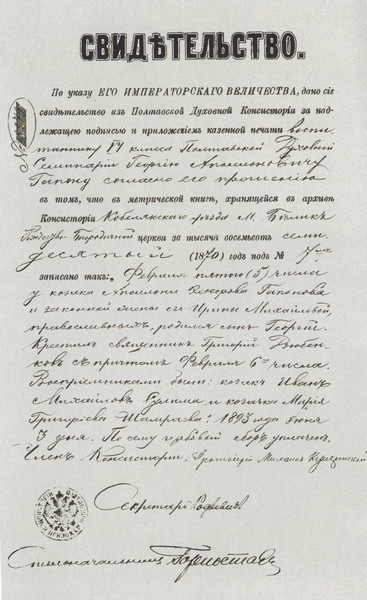 СВИДѢТЕЛЬСТВО.
По указу ЕГО ИМПЕРАТОРСКАГО ВЕЛИЧЕСТВА, дано сіе
свидѣтельство изъ Полтавской Духовной Консисторіи за над-
лежащею подписью и приложеніемъ казенной печати воспи-
таннику VI класса Полтавской Духовной
Семинаріи Георгію Аполлоновичу
Гапону согласно его прошенію
въ томъ, что въ метрической книгѣ, хранящейся въ архивѣ
Консисторіи Кобелякскаго уѣзда М. Бѣлик
Рождество Богородичной церкви за тысяча восемьсотъ семи
десятый (1870) годъ подъ №
записано такъ: Февраля пятого (5) числа
у козака Аполлона Ѳедорова Гапонова
и законной жены его Ирины Михайловой,
православныхъ, родился сынъ Георгій.
Крестилъ священникъ Григорій
съ причтомъ Февраля 6го числа.
Воспріемниками были: козакъ Иванъ
Михайловъ и козачка Марія
Григоріева 1893 года Іюня
3 дня. По сему гербовый сборъ уплаченъ.
Членъ Консисторіи, Протоіерей Михаилъ
Секретарь
Столоначальникъ Горностаевъ